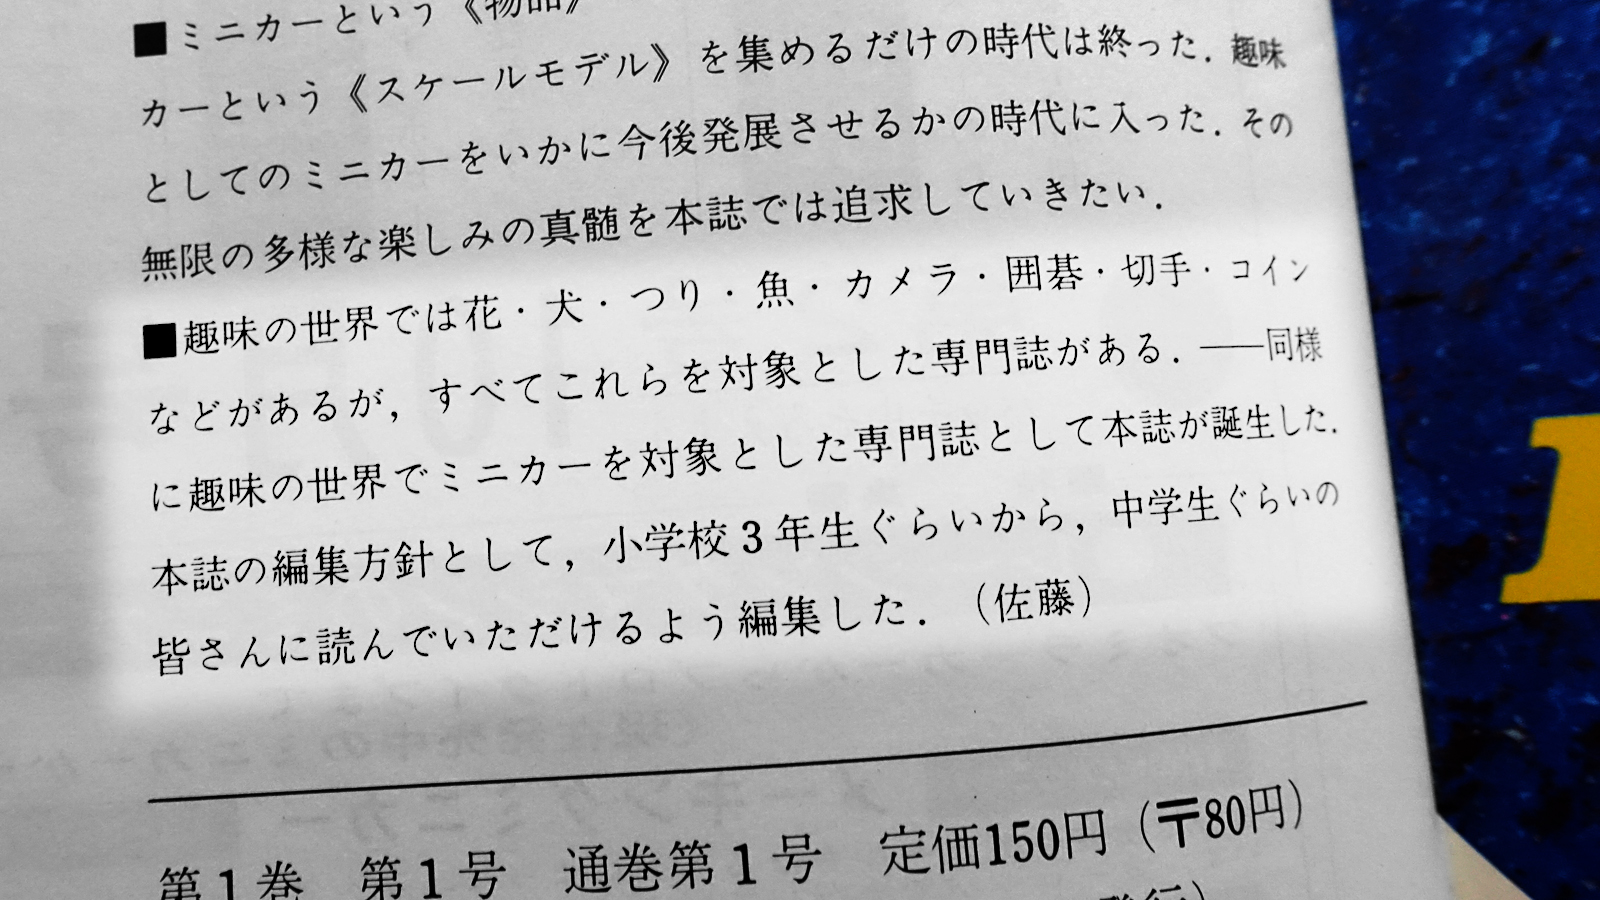 ■ミニカーという《物品》
カーという《スケールモデル》を集めるだけの時代は終った．趣味
としてのミニカーをいかに今後発展させるかの時代に入った．その
無限の多様な楽しみの真髄を本誌では追求していきたい．
■趣味の世界では花・犬・つり・魚・カメラ・囲碁・切手・コイン
などがあるが，すべてこれらを対象とした専門誌がある．――同様
に趣味の世界でミニカーを対象とした専門誌として本誌が誕生した．
本誌の編集方針として，小学校3年生ぐらいから，中学生ぐらいの
皆さんに読んでいただけるよう編集した．（佐藤）
第1巻　第1号　通巻第1号　定価150円（〒80円）
発行）